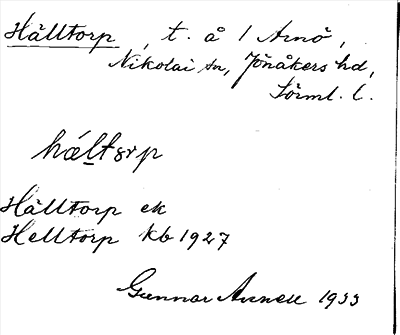 Hälltorp, t. å / Arnö,
Nikolai sn, Jönåkers hd,
Sörml. l.
hǽltɵrp
Hälltorp ek
Helltorp kb 1927
Gunnar 1933